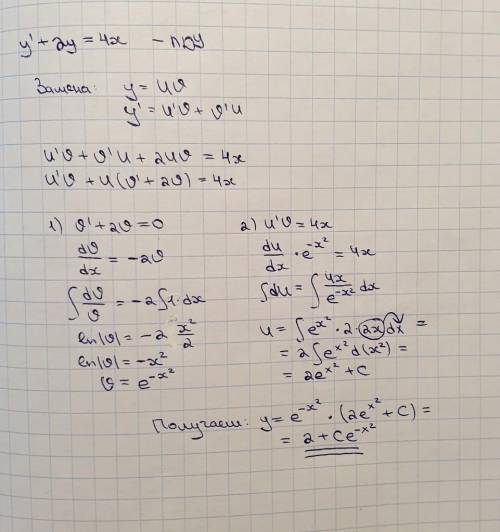 y' + 2y = 4x – ЛДУ
Замена: y = uϑ
y' = u'ϑ + ϑ'u
u'ϑ + ϑ'u + 2uϑ = 4x
u'ϑ + u(ϑ' + 2ϑ) = 4x
1) ϑ' + 2ϑ = 0
dϑ/dx = -2ϑ
∫ dϑ/ϑ = -2∫1·dx
ln|ϑ| = -2 x²/2
ln|ϑ| = -x²
ϑ = e^(-x²)
2) u'ϑ = 4x
du/dx · e^(-x²) = 4x
∫du = ∫ 4x/e^(-x²) dx
u = ∫e^(x²) · 2 · 2x dx =
= 2∫e^(x²) d(x²) =
= 2e^(x²) + C
Получаем: y = e^(-x²) · (2e^(x²) + C) =
= 2 + Ce^(-x²)